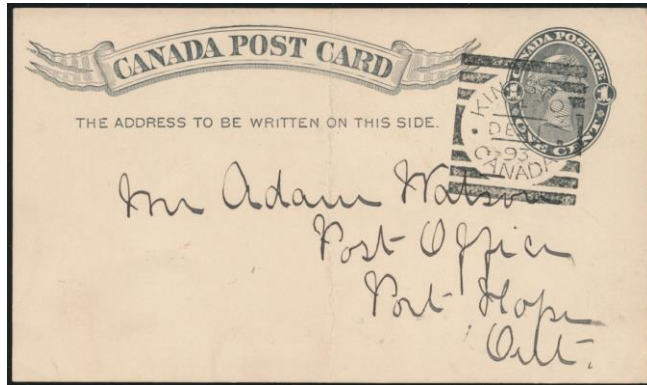 CANADA POST CARD
THE ADDRESS TO BE WRITTEN ON THIS SIDE.
CANADA POSTAGE
1 1
ONE CENT
KINGSTON
DE
93
CANADA
Mr Adam Watson
Post Office
Port Hope
Ont.